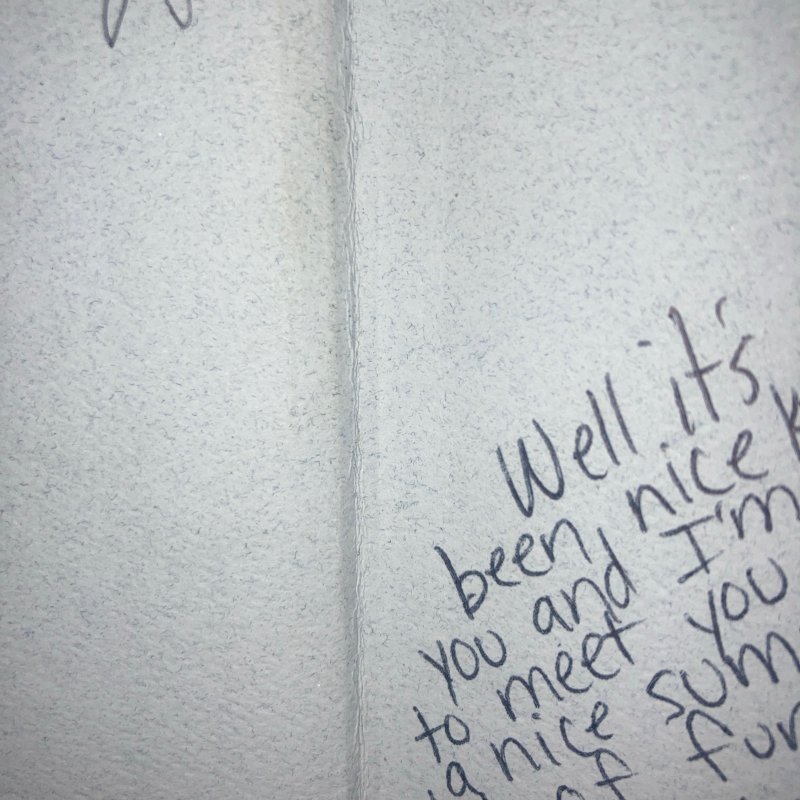 Well it's
been nice
you and I'm
to meet you
a nice sum
of fun